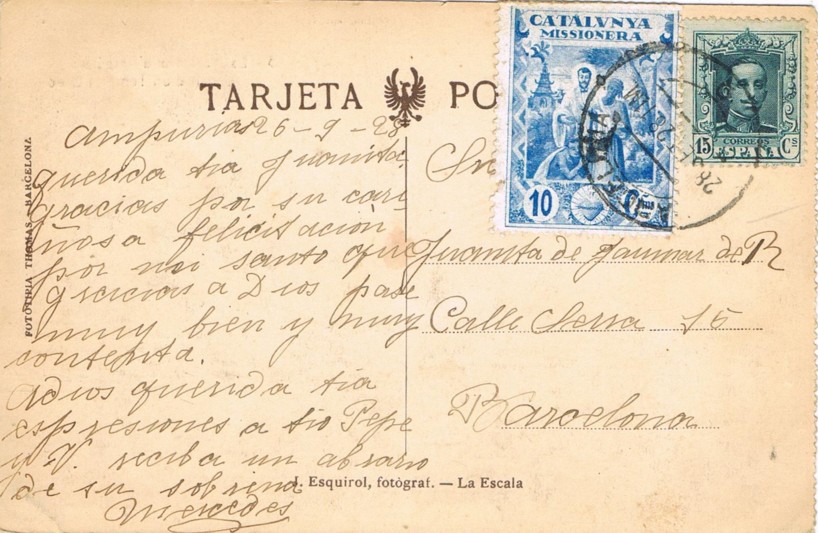 CATALVNYA
MISSIONERA
10
15 Cs
CORREOS
ESPAÑA
TARJETA PO
Ampurias 26-9-28
Querida tia Juanita:
gracias por su cari-
ñosa felicitación
por mi santo que
gracias a Dios pasé
muy bien y muy
contenta.
Adios querida tia
espresiones a tio Pepe
y V. reciba un abraro
de su sobrina
Mercedes
Juanita de Jaumar de R
Calle Serra 15
Barcelona
FOTOTIPIA THOMAS - BARCELONA
J. Esquirol, fotógraf. — La Escala